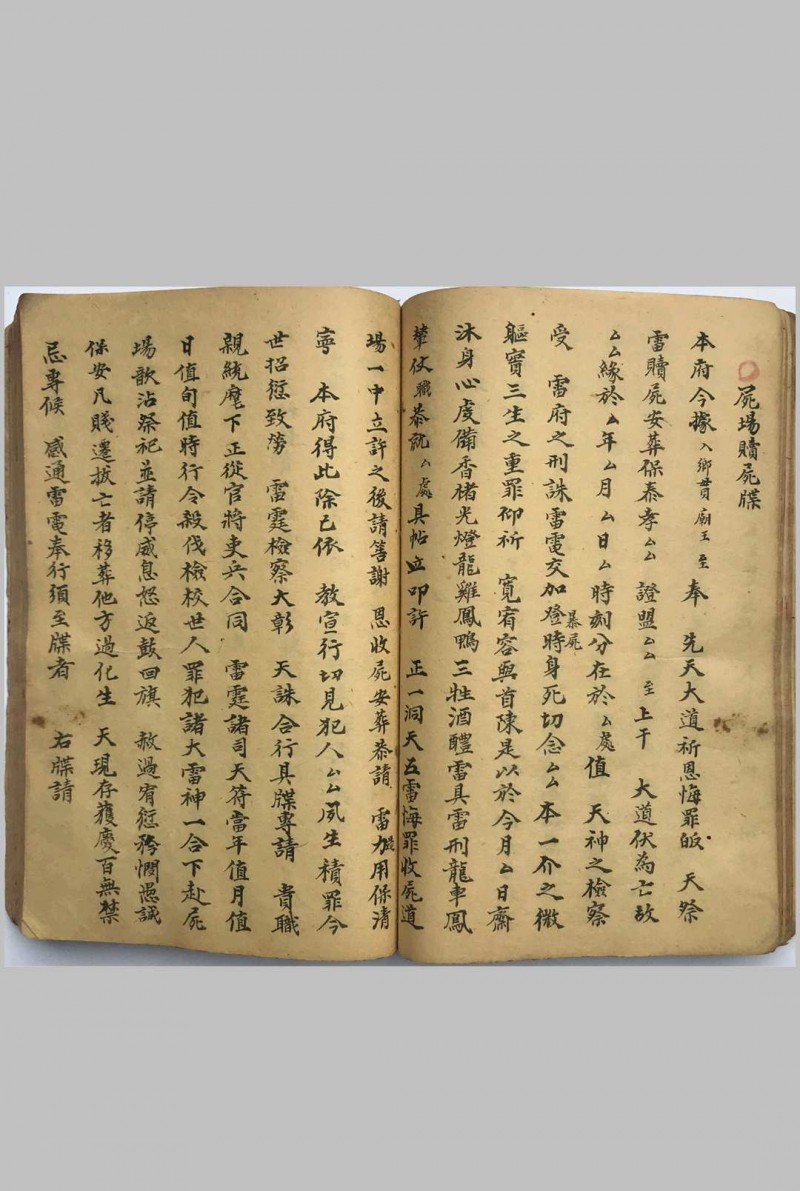 屍場贖屍牒
本府今據入鄉貫廟王至奉 先天大道祈恩悔罪皈 天祭
雷贖屍安葬保泰孝厶厶 證盟厶厶至上干 大道伏為亡故
厶厶緣於厶年厶月厶日厶時刻分在於厶處值 天神之檢察
受 雷府之刑誅雷電交加登時身死暴屍切念厶厶本一介之微
軀實三生之重罪仰祈 寬宥容與首陳是以於今月厶日齋
沐身心虔備香楮光燈龍雞鳳鴨三牲酒醴雷具雷刑龍車鳳
輦仗職恭就厶處具帖立叩許 正一洞天五雷悔罪收屍道
場一中立許之後請荅謝 恩收屍安葬恭請 雷力用保清
寧 本府得此除已依 教宣行切見犯人厶厶夙生積罪今
世招愆致勞 雷霆檢察大彰 天誅合行具牒專請 貴職
親統麾下正從官將吏兵合同 雷霆諸司天符當年值月值
日值旬值時行令殺伐檢校世人罪犯諸大雷神一合下赴屍
場歆沾祭祀並請停威息怒返鼓回旗 赦過宥愆矜憫愚誠
保安凡賤遷拔亡者移葬他方過化生 天現存獲慶百無禁
忌專候 感通雷電奉行須至牒者 右牒請